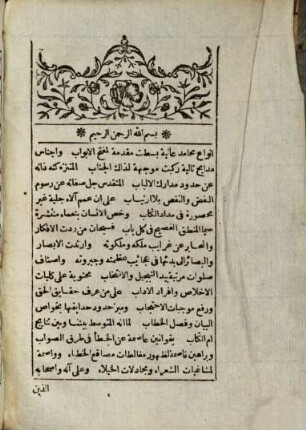 بسم الله الرحمن الرحيم
انواع محامد عالية بسطت مقدمة لمفتح الابواب واجناس
مدايح تالية ركبت موجهة لذلك الجناب المتنزه كنه ذاته
عن حدود مدارك الالباب المتقدس جل صفاته عن رسوم
النقض والنقص بلا ارتياب على ان عمم آلاء جلية غير
محصورة في مداد الكتاب وخص الانسان بنعماء منتشرة
سيما المنطق الفصيح في كل باب فسبحان من ردت الافكار
وانحاير عن غرايب ملكه وملكوته وارتدت الابصار
والبصائر الى بدئها في عجائب عظمته وجبروته واصناف
صلوات مرتبة بيد التبجيل والانتخاب محتوية على كليات
الاخلاص وافراد الاداب على من عرف حقايق الحق
ورفع موجبات الاحتجاب وميز حدود حدايقها بخواص
البيان وفصل الخطاب لما انه المتوسط بيننا وبين نتايج
ام الكتاب بقوانين عاصمة عن الخطأ في طرق الصواب
وبراهين قاصمة لظهور مغالطات مصاقع الخطباء وواصمة
لمشاغبات الشعراء ومجادلات الخيلاء وعلى آله واصحابه
الذين